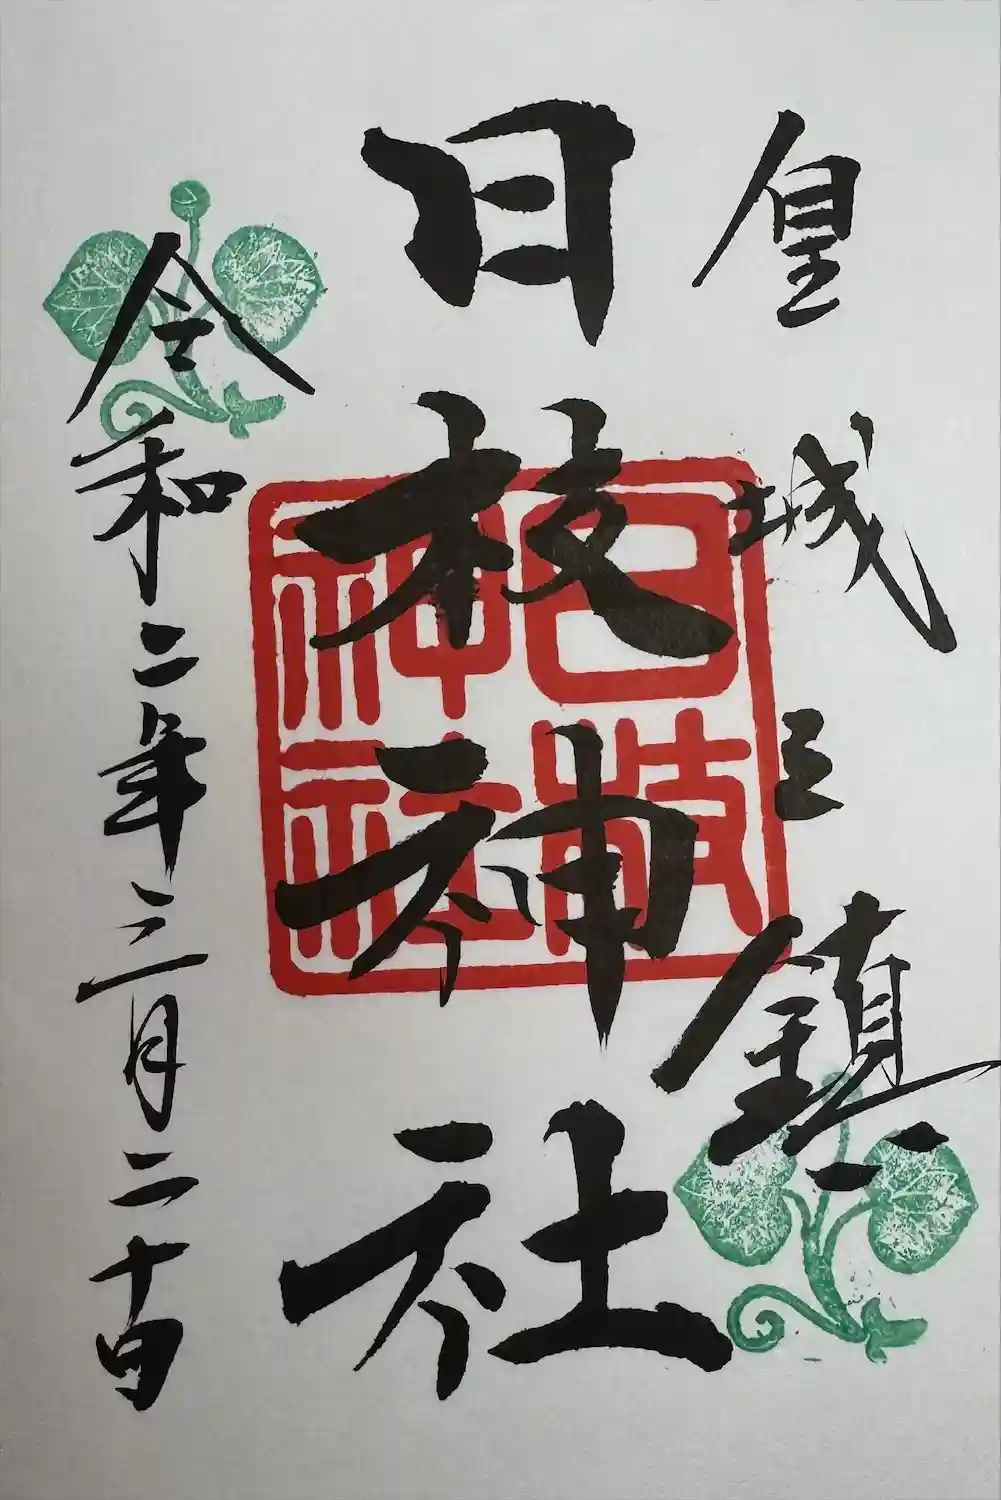 皇城之鎮
日枝神社
令和二年三月二十日
日枝
神社